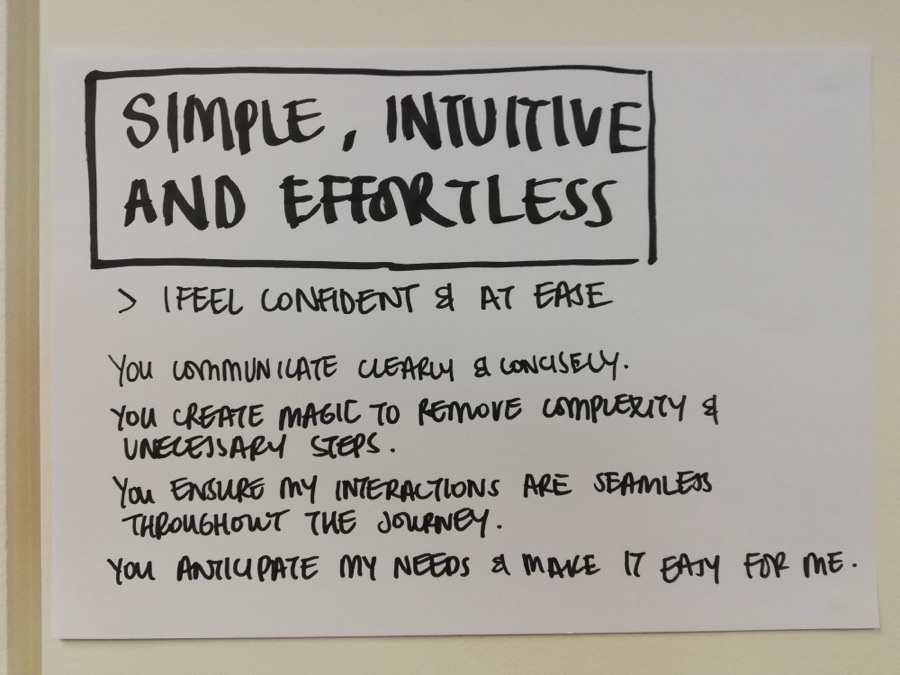 SIMPLE, INTUITIVE
AND EFFORTLESS
> I FEEL CONFIDENT & AT EASE
YOU COMMUNICATE CLEARLY & CONCISELY.
YOU CREATE MAGIC TO REMOVE COMPLEXITY &
UNECESSARY STEPS.
YOU ENSURE MY INTERACTIONS ARE SEAMLESS
THROUGHOUT THE JOURNEY.
YOU ANTICIPATE MY NEEDS & MAKE IT EASY FOR ME.